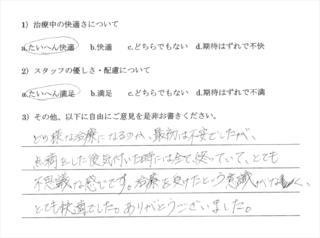 1) 治療中の快適さについて
a.たいへん快適 b.快適 c.どちらでもない d.期待はずれで不快
2) スタッフの優しさ・配慮について
a.たいへん満足 b.満足 c.どちらでもない d.期待はずれで不満
3) その他、以下に自由にご意見を是非お書きください。
どの様な治療になるのか、最初は不安でしたが、
点滴をした後気付いた時には全て終っていて、とても
不思議な感じです。治療を受けたという意識がなく、
とても快適でした。ありがとうございました。